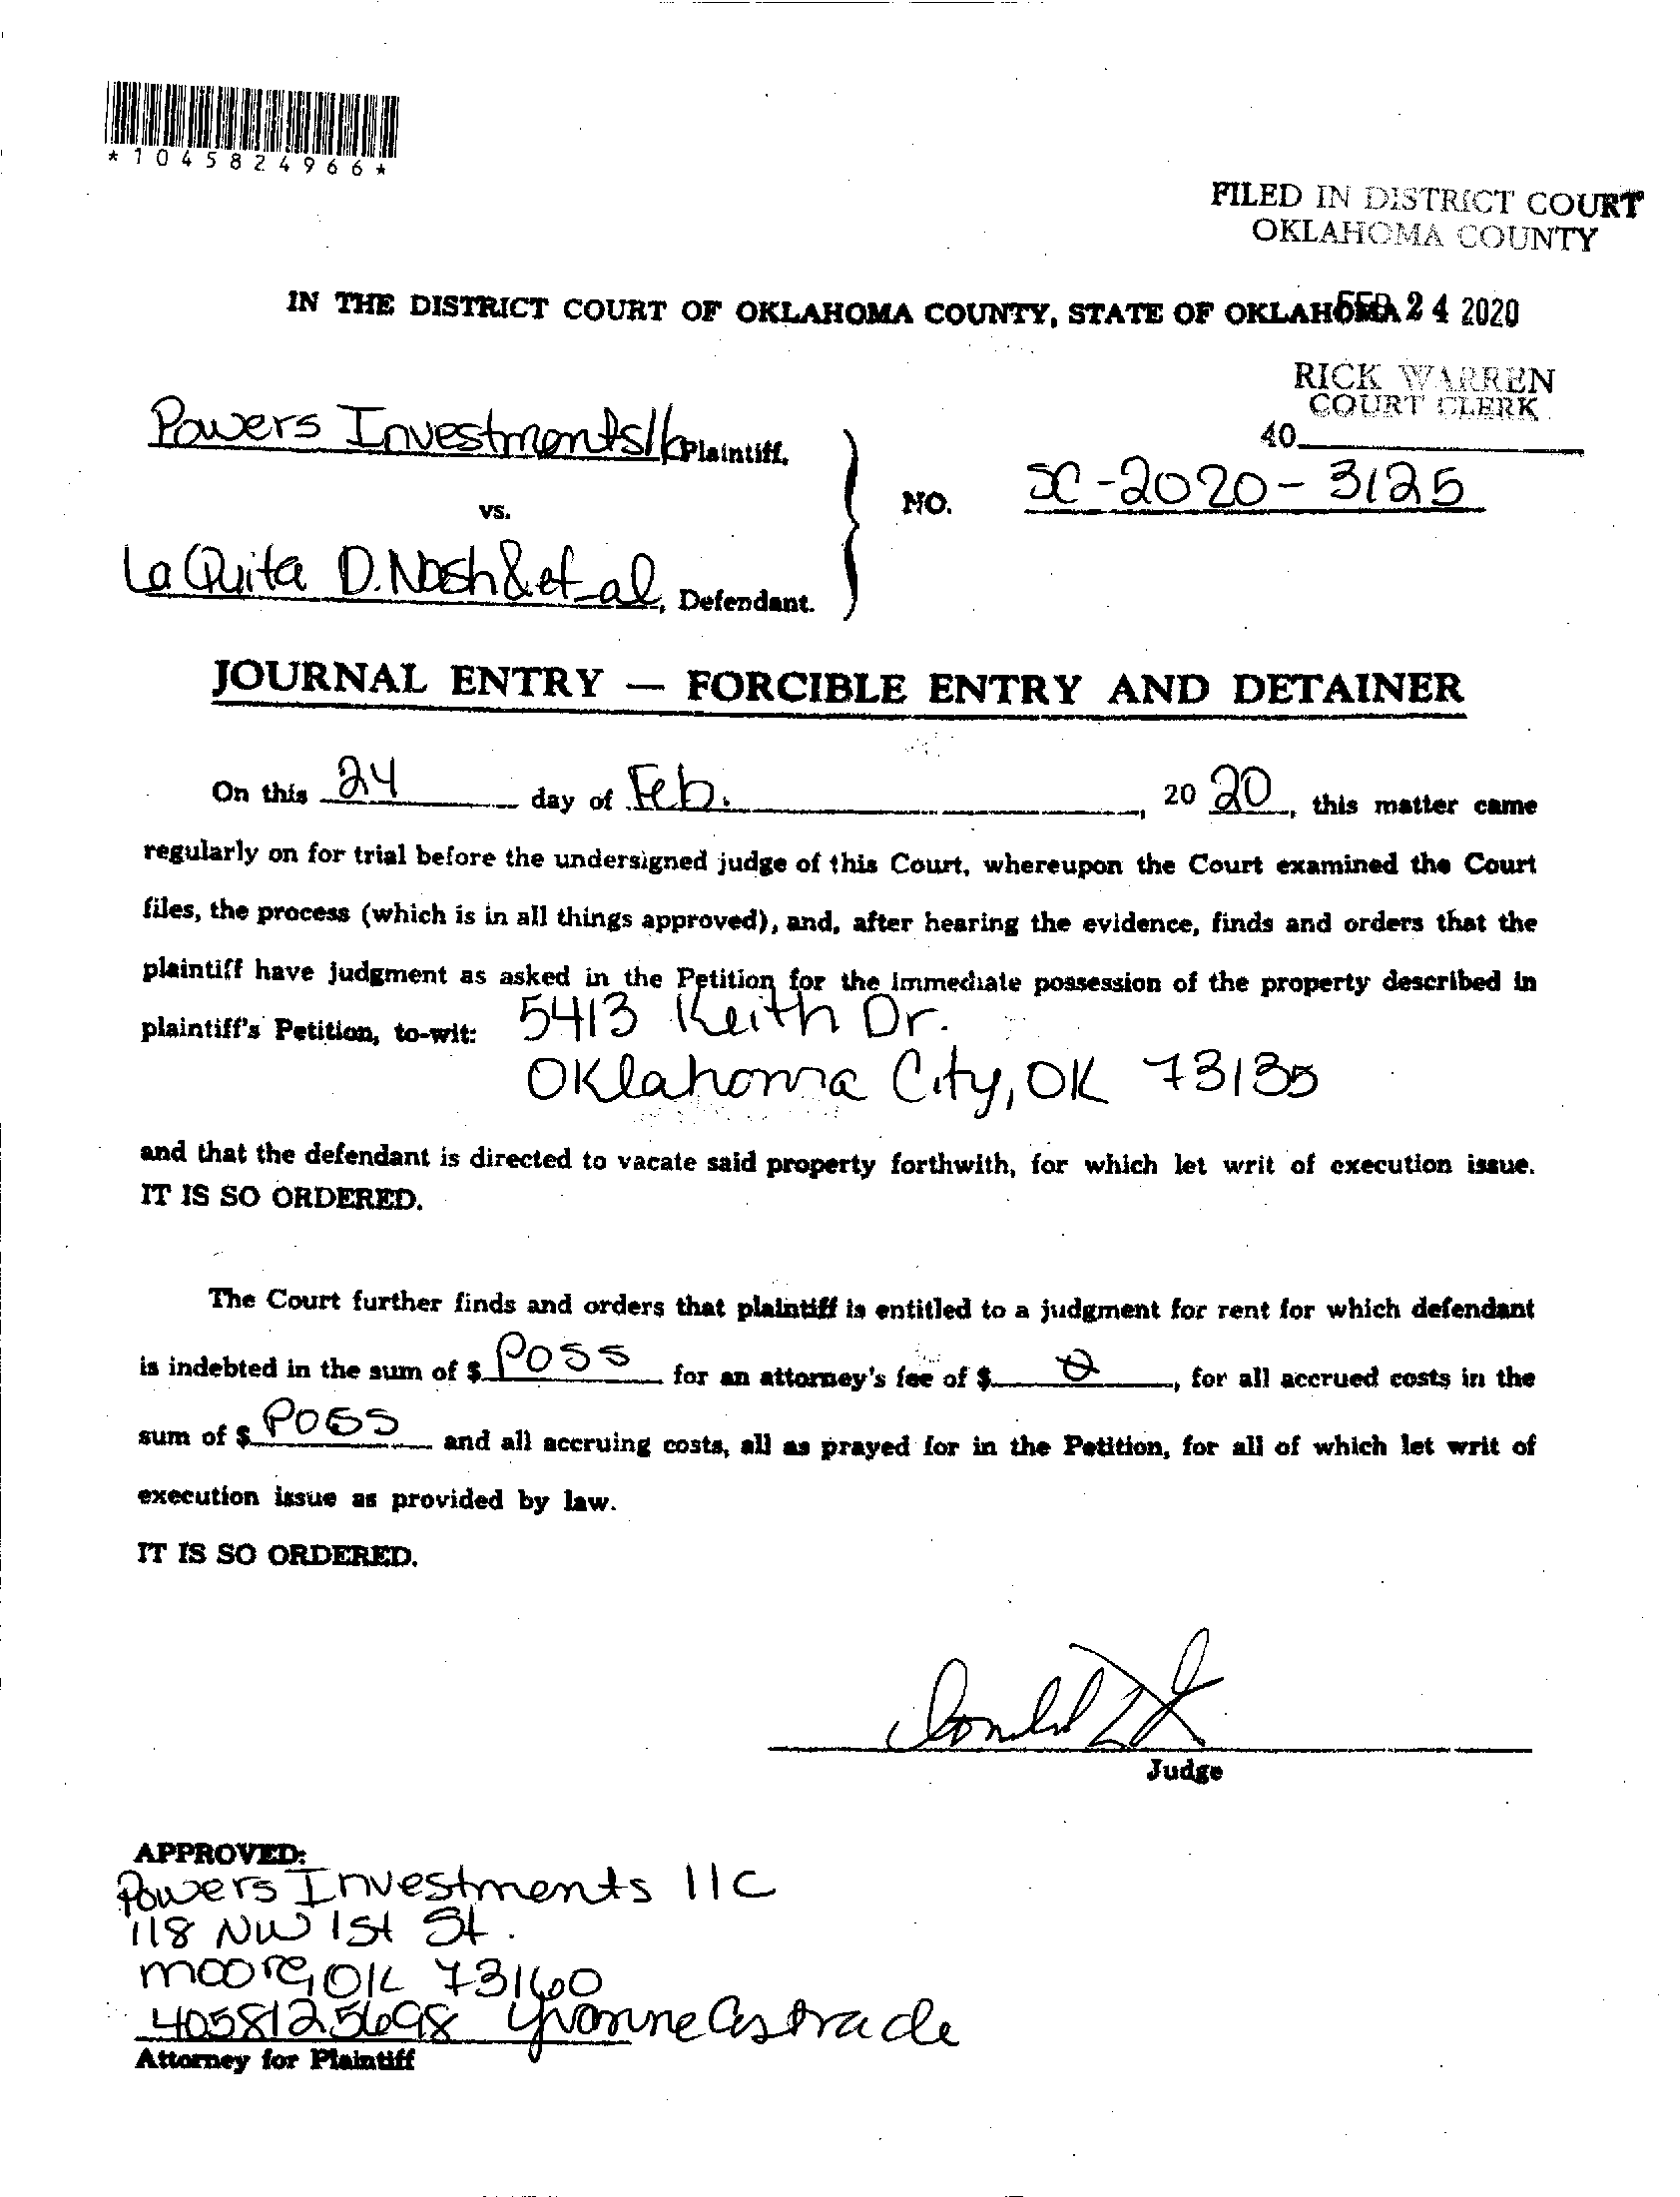 *1045824966*
FILED IN DISTRICT COURT
OKLAHOMA COUNTY
IN THE DISTRICT COURT OF OKLAHOMA COUNTY, STATE OF OKLAHOMA
FEB 24 2020
RICK WARREN
COURT CLERK
40
Powers Investments llc Plaintiff,
NO. SC-2020-3125
vs.
La Quita D. Nash & et al, Defendant.
JOURNAL ENTRY — FORCIBLE ENTRY AND DETAINER
On this 24 day of Feb., 20 20, this matter came
regularly on for trial before the undersigned judge of this Court, whereupon the Court examined the Court
files, the process (which is in all things approved), and, after hearing the evidence, finds and orders that the
plaintiff have judgment as asked in the Petition for the immediate possession of the property described in
plaintiff's Petition, to-wit: 5413 Keith Dr.
Oklahoma City, OK 73135
and that the defendant is directed to vacate said property forthwith, for which let writ of execution issue.
IT IS SO ORDERED.
The Court further finds and orders that plaintiff is entitled to a judgment for rent for which defendant
is indebted in the sum of $ Poss for an attorney's fee of $ 0, for all accrued costs in the
sum of $ Poss and all accruing costs, all as prayed for in the Petition, for all of which let writ of
execution issue as provided by law.
IT IS SO ORDERED.
Judge
APPROVED:
Powers Investments llc
118 NW 1st St.
Moore, OK 73160
4058125698 Yvonne Estrade
Attorney for Plaintiff